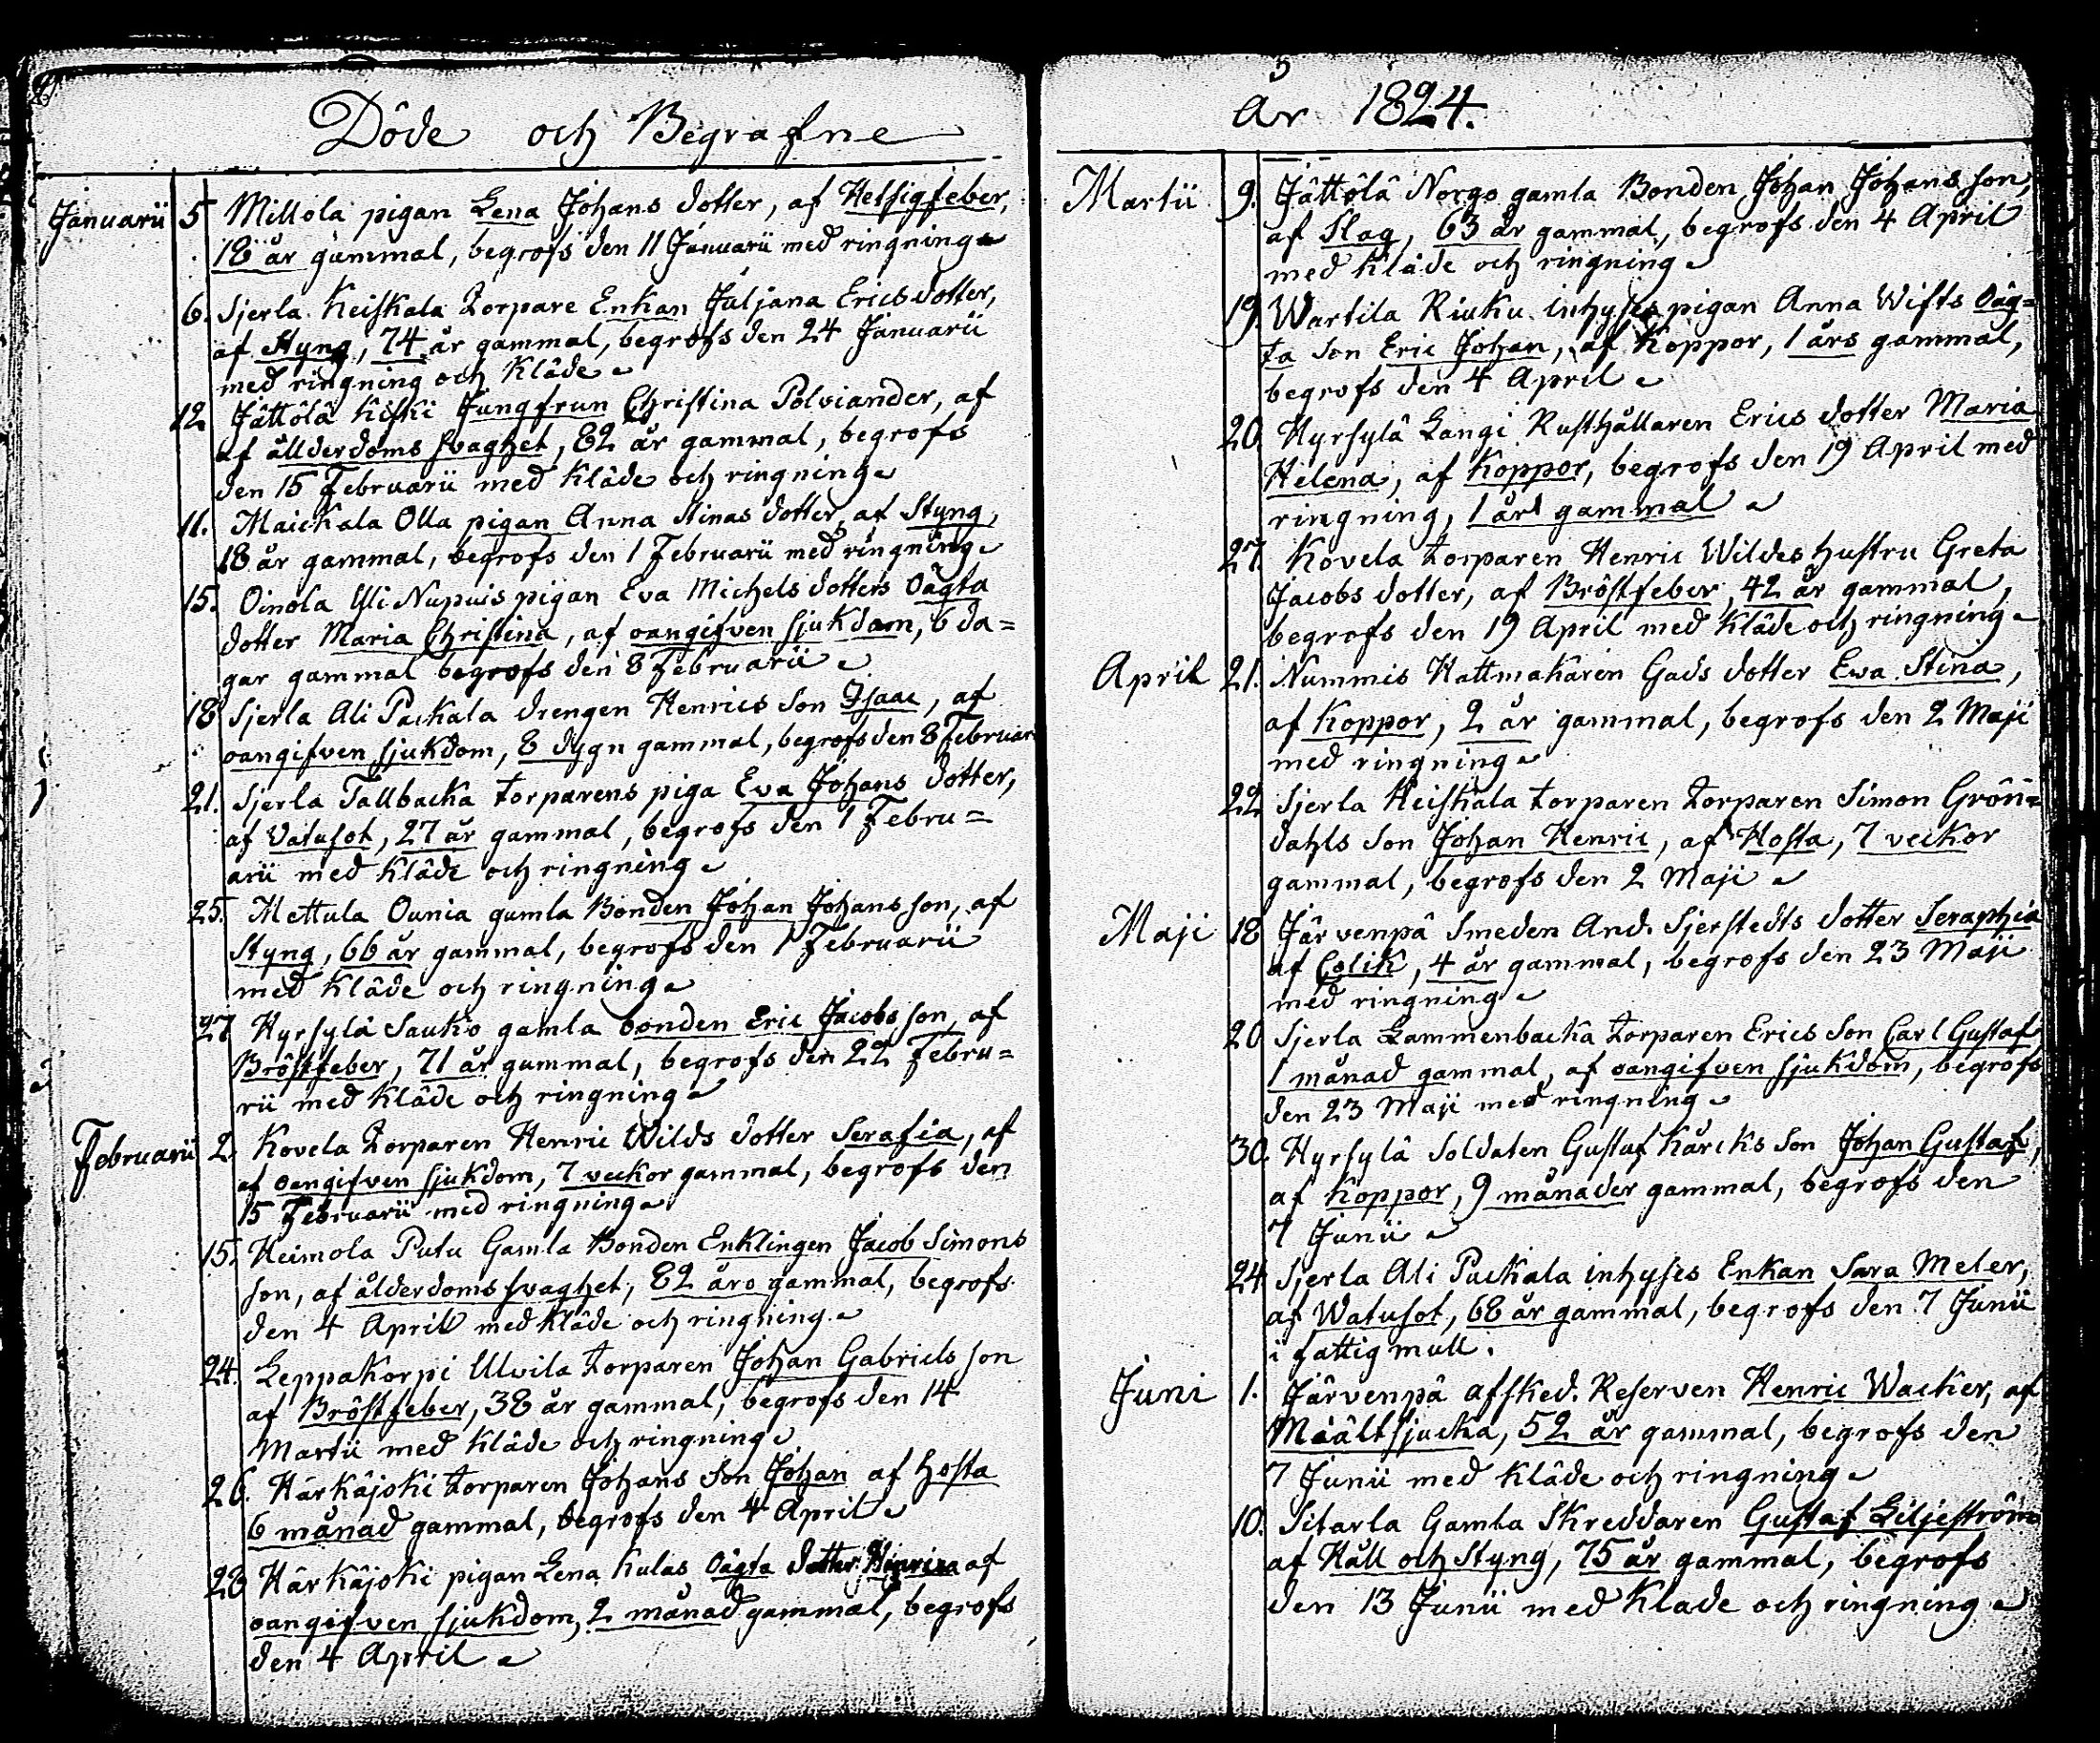 Döde och Begrafne
Januarii 5 Millola pigan Lena Johans dotter, af Hetsigfeber,
18 år gammal, begrofs den 11 Januarii med ringning
6. Sjerla Keiskala Torpare Enkan Juljana Erics dotter,
af Styng, 74 år gammal, begrofs den 24 Januarii
med ringning och Kläde
12 Jättölä Kiski Jungfrun Christina Polviander, af
af ållderdoms svaghet, 82 år gammal, begrofs
den 15 Februarii med Kläde och ringning
11. Maickala Olla pigan Anna Stinas dotter, af Styng,
18 år gammal, begrofs den 1 Februarii med ringning
15. Oinola Yli Nupuis pigan Eva Michels dotters Oägta
dotter Maria Christina, af oangifven sjukdom, 6 da=
gar gammal begrofs den 8 Februarii
18 Sjerla Ali Packala drengen Henrics Son Isaac, af
oangifven sjukdom, 8 dygn gammal, begrofs den 8 Februari
21. Sjerla Tallbacka torparens piga Eva Johans dotter,
af Vatusot, 27 år gammal, begrofs den 1 Febru=
arii med Kläde och ringning
25. Mettula Ounia gamla Bonden Johan Johansson, af
Styng, 66 år gammal, begrofs den 1 Februarii
med Kläde och ringning
27 Hyrsylä Sauko gamla bonden Eric Jacobsson, af
Bröstfeber, 71 år gammal, begrofs den 22 Febru=
rii med Kläde och ringning
Februarii 2 Kovela Torparen Henric Wilds dotter Serafia, af
af oangifven sjukdom, 7 veckor gammal, begrofs den
15 Februarii med ringning
15. Heimola Putu Gamla Bonden Enklingen Jacob Simons
son, af ålderdoms svaghet, 82 åro gammal, begrofs
den 4 April med Kläde och ringning
24. Leppakorpi Ulvila torparen Johan Gabriels son
af Bröstfeber, 38 år gammal, begrofs den 14
Martii med Kläde och ringning
26. Härkäjoki torparen Johans Son Johan af hosta
6 månad gammal, begrofs den 4 April
28 Härkäjoki pigan Lena Kulas Oägta dotter Hinrica af
oangifven sjukdom, 2 månad gammal, begrofs
den 4 April
år 1824.
Martii 9. Jättölä Norgo gamla Bonden Johan Johans son,
af Slag, 63 år gammal, begrofs den 4 April
med Kläde och ringning
19. Wartila Riuku inhyses pigan Anna Wifts Oäg=
ta Son Eric Johan, af Koppor, 1 års gammal,
begrofs den 4 April
20. Hyrsylä Langi Rusthållaren Erics dotter Maria
Helena, af Koppor, begrofs den 19 April med
ringning, 1 års gammal
27 Kovela torparen Henric Wildes hustru Greta
Jacobs dotter, af Bröstfeber, 42 år gammal,
begrofs den 19 April med Kläde och ringning
April 21. Nummis Hattmakaren Gads dotter Ewa Stina,
af Koppor, 2 år gammal, begrofs den 2 Maji
med ringning
22 Sjerla Keiskala torparen Torparen Simon Grön=
dahls Son Johan Henric, af Hosta, 7 veckor
gammal, begrofs den 2 Maji
Maji 18 Järvenpä Smeden And. Sjerstedts dotter Seraphia
af Colik, 4 år gammal, begrofs den 23 Maji
med ringning
20 Sjerla Lammenbacka torparen Erics Son Carl Gustaf,
1 månad gammal, af oangifven sjukdom, begrofs
den 23 Maji med ringning
30. Hyrsylä Soldaten Gustaf Kärcks Son Johan Gustaf,
af Koppor, 9 månader gammal, begrofs den
7 Junii
24 Sjerla Ali Packala inhyses Enkan Sara Meler,
af Watusot, 68 år gammal, begrofs den 7 Junii
i fattig mull.
Juni 1. Järvenpä afsked. Reserven Henric Wacker, af
Määltsjucka, 52 år gammal, begrofs den
7 Junii med Kläde och ringning
10. Sitarla Gamla Skreddaren Gustaf Liljeström
af Håll och Styng, 75 år gammal, begrofs
den 13 Junii med Klade och ringning